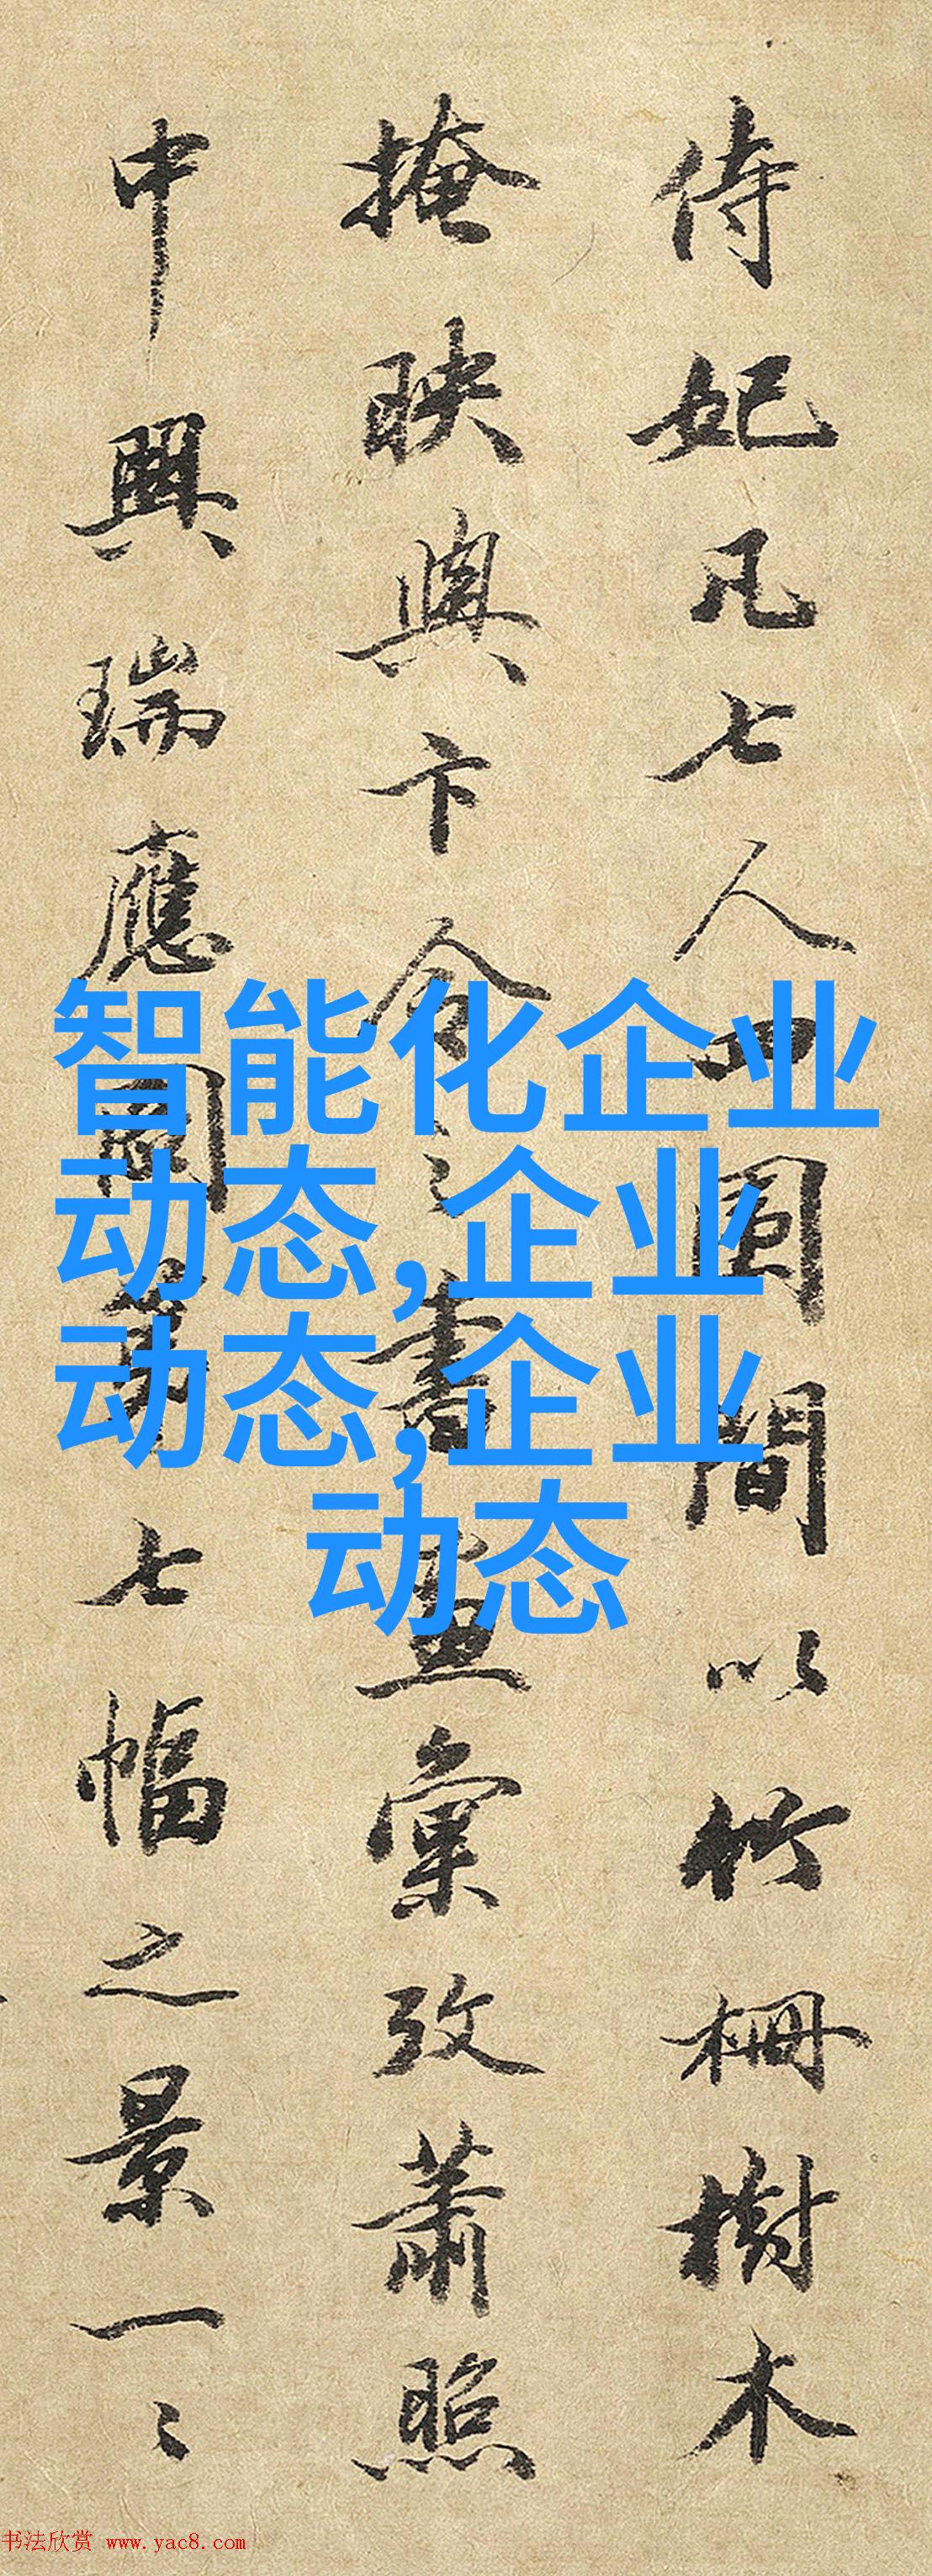 侍妃凡七人四围間以竹栅樹木
掩映與卞令之書畫彙攷蕭照
中興瑞應圖第七幅之景一〻
智能化企业
动态,企业
动态,企业
动态
书法欣赏 www.yac8.com